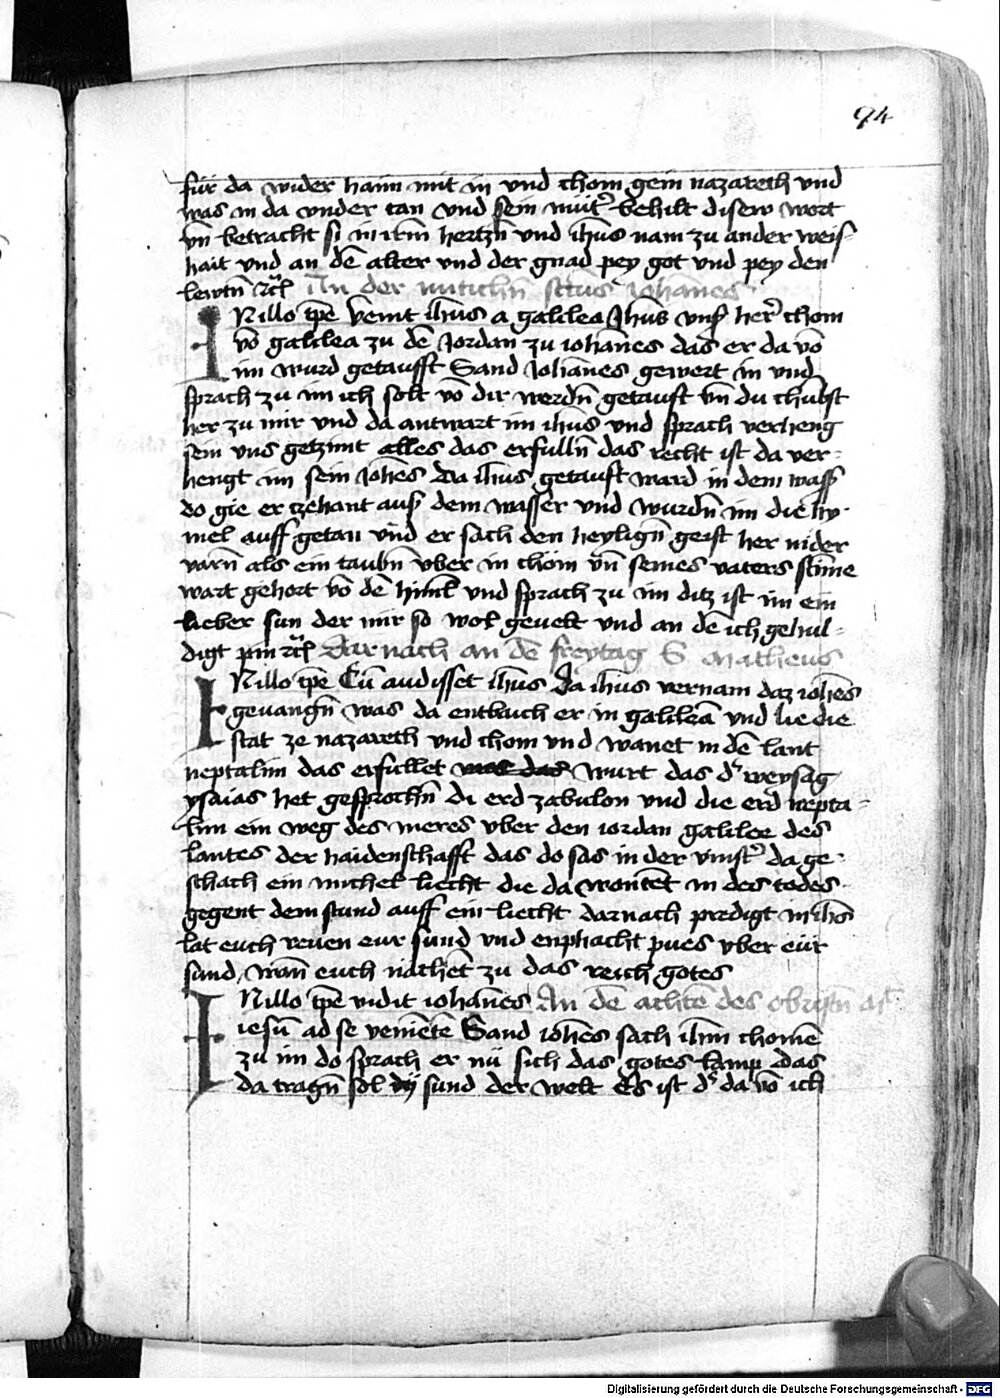 94
für da wider haim mit in und chom gein nazareth und
was in da under tan und sein müt' behilt disew wort
vn̄ betracht si in irm̄ hertzn̄ und ih̄us nam zu an der weis
hait und an dē alter und der gnad pey got und pey den
lewtn̄ rc̄ In der mitichn̄ sctūs iohanes
INillo tp̄e venit ih̄us a galilea Jhūs unß her' chom
vō galilea zu dē Jordan zu iohānes das er da vō
im wurd getaufft Sand Johānes gewert in und
sprach zu im ich solt vō dir werdn̄ getauft vn̄ du chūbst
her zu mir und da antwart im ih̄us und sprach verheng
sein uns getzimt alles das erfulln̄ das recht ist da ver-
hengt im sein Joh̄es Da ih̄us getauft ward in dem wasß
do gie er czehant auß dem wasser und wurdn̄ im die hy-
mel auff getan und er sach den heylign̄ geist her nider
varn̄ als ein taubn̄ uber in chöm vn̄ seines vaters stīme
wart gehort vō dē himl̄ und sprach zu im ditz ist im ein
lieber sun der mir so wol gevelt und an dē ich gehul-
digt pin rc̄ Dar nach an dē freytag S matheus
INillo tp̄e Cū audisset ih̄us Da ih̄us vernam daz ioh̄es
gevangn̄ was da entbaich er in galileā und lie die
stat ze nazareth und chom und wanet in dē lant
neptalim das erfullet was das wurt das d' weysag
ysaias het gesprochn̄ di erd zabulon und die erd nepta-
lim ein weg des meres uber den iordan galilee des
lantes der haidenschafft das do sas in der vinst' da ge-
schach ein michel liecht die da wontēt in des todes
gegent dem stund auff ein liecht dar nach predigt in ih̄s
lat euch reuen eur sünd und enphacht pues uber eür
sund, wan̄ euch nachēt zu das reich gotes
INillo tp̄e vidit iohānes An dē achtē des obristn̄
iesū ad se veniētē Sand ioh̄es sach ih̄m chomē
zu im do sprach er nū sich das gotes lamp das
da tragn̄ sol dy sund der welt Es ist d' da vō ich
Digitalisierung gefördert durch die Deutsche Forschungsgemeinschaft - DFG